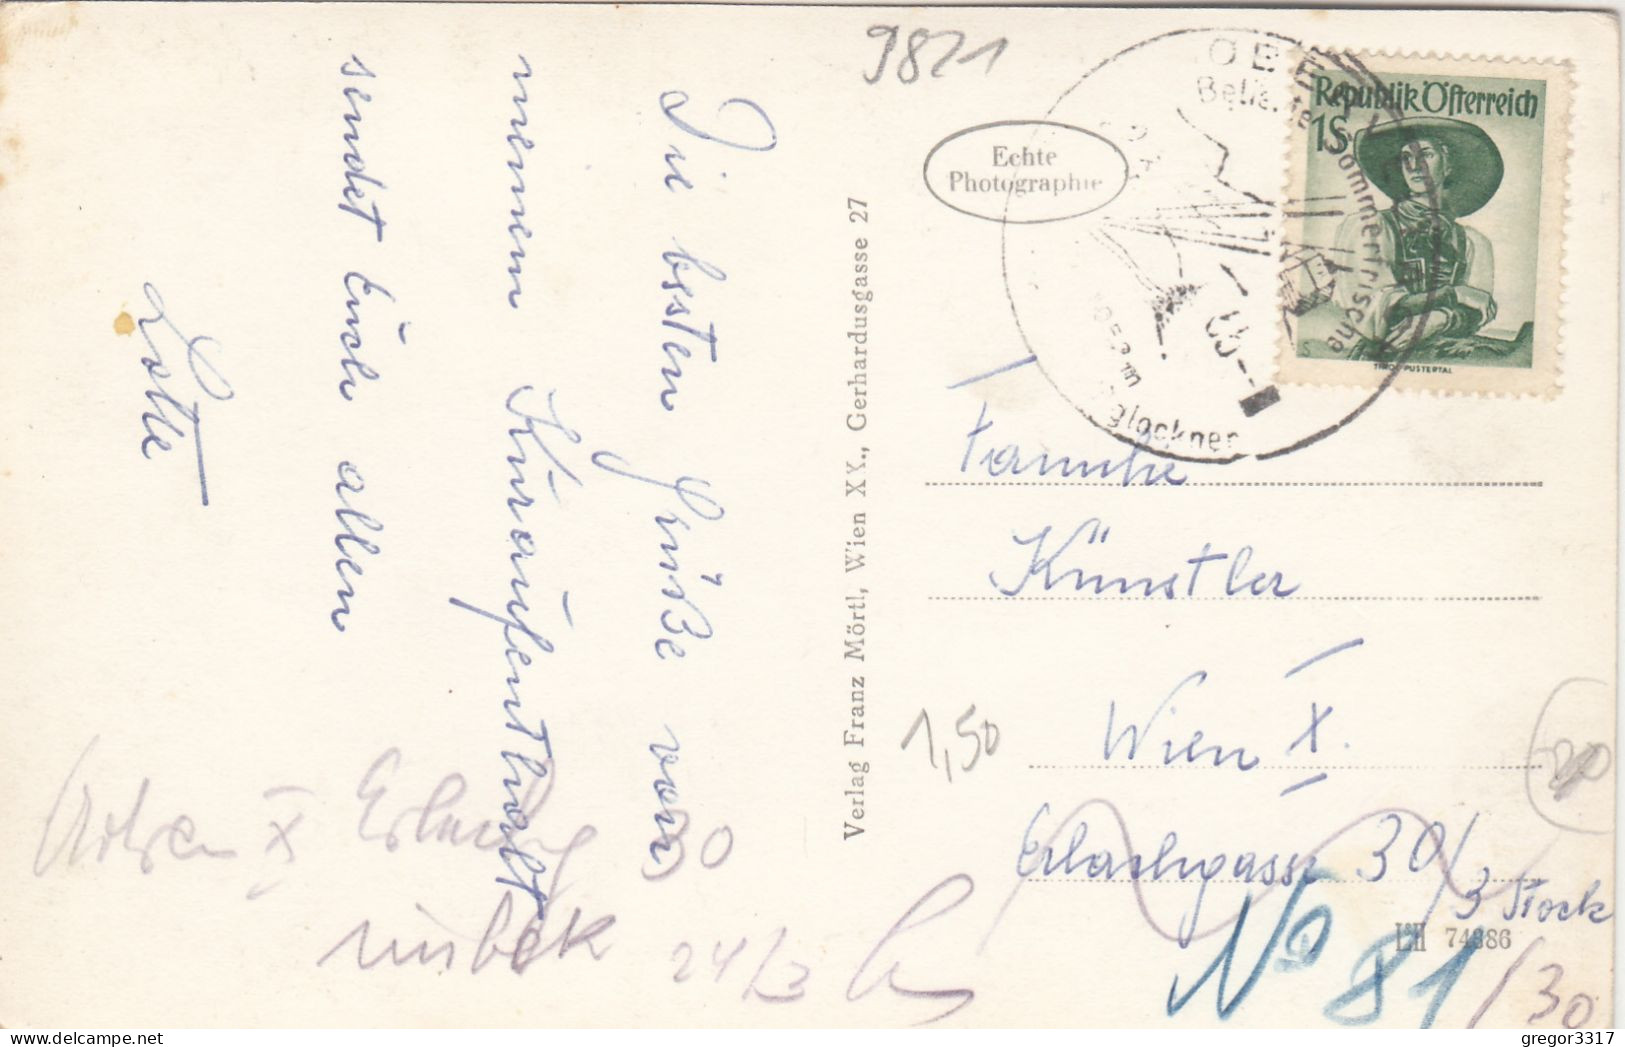 Die besten Grüße von
meinem Kuraufenthalt
sendet Euch allen
Lotte
9821
Echte
Photographie
Republik Österreich
1S
TIROL PUSTERTAL
Sommerfrische
1050 m
glockner
Verlag Franz Mörtl, Wien XX., Gerhardusgasse 27
Familie
Künstler
Wien X.
1,50
Erlachgasse 30/
3 Stock
20
X 30
24/3
No 81/30
74886
gregor3317